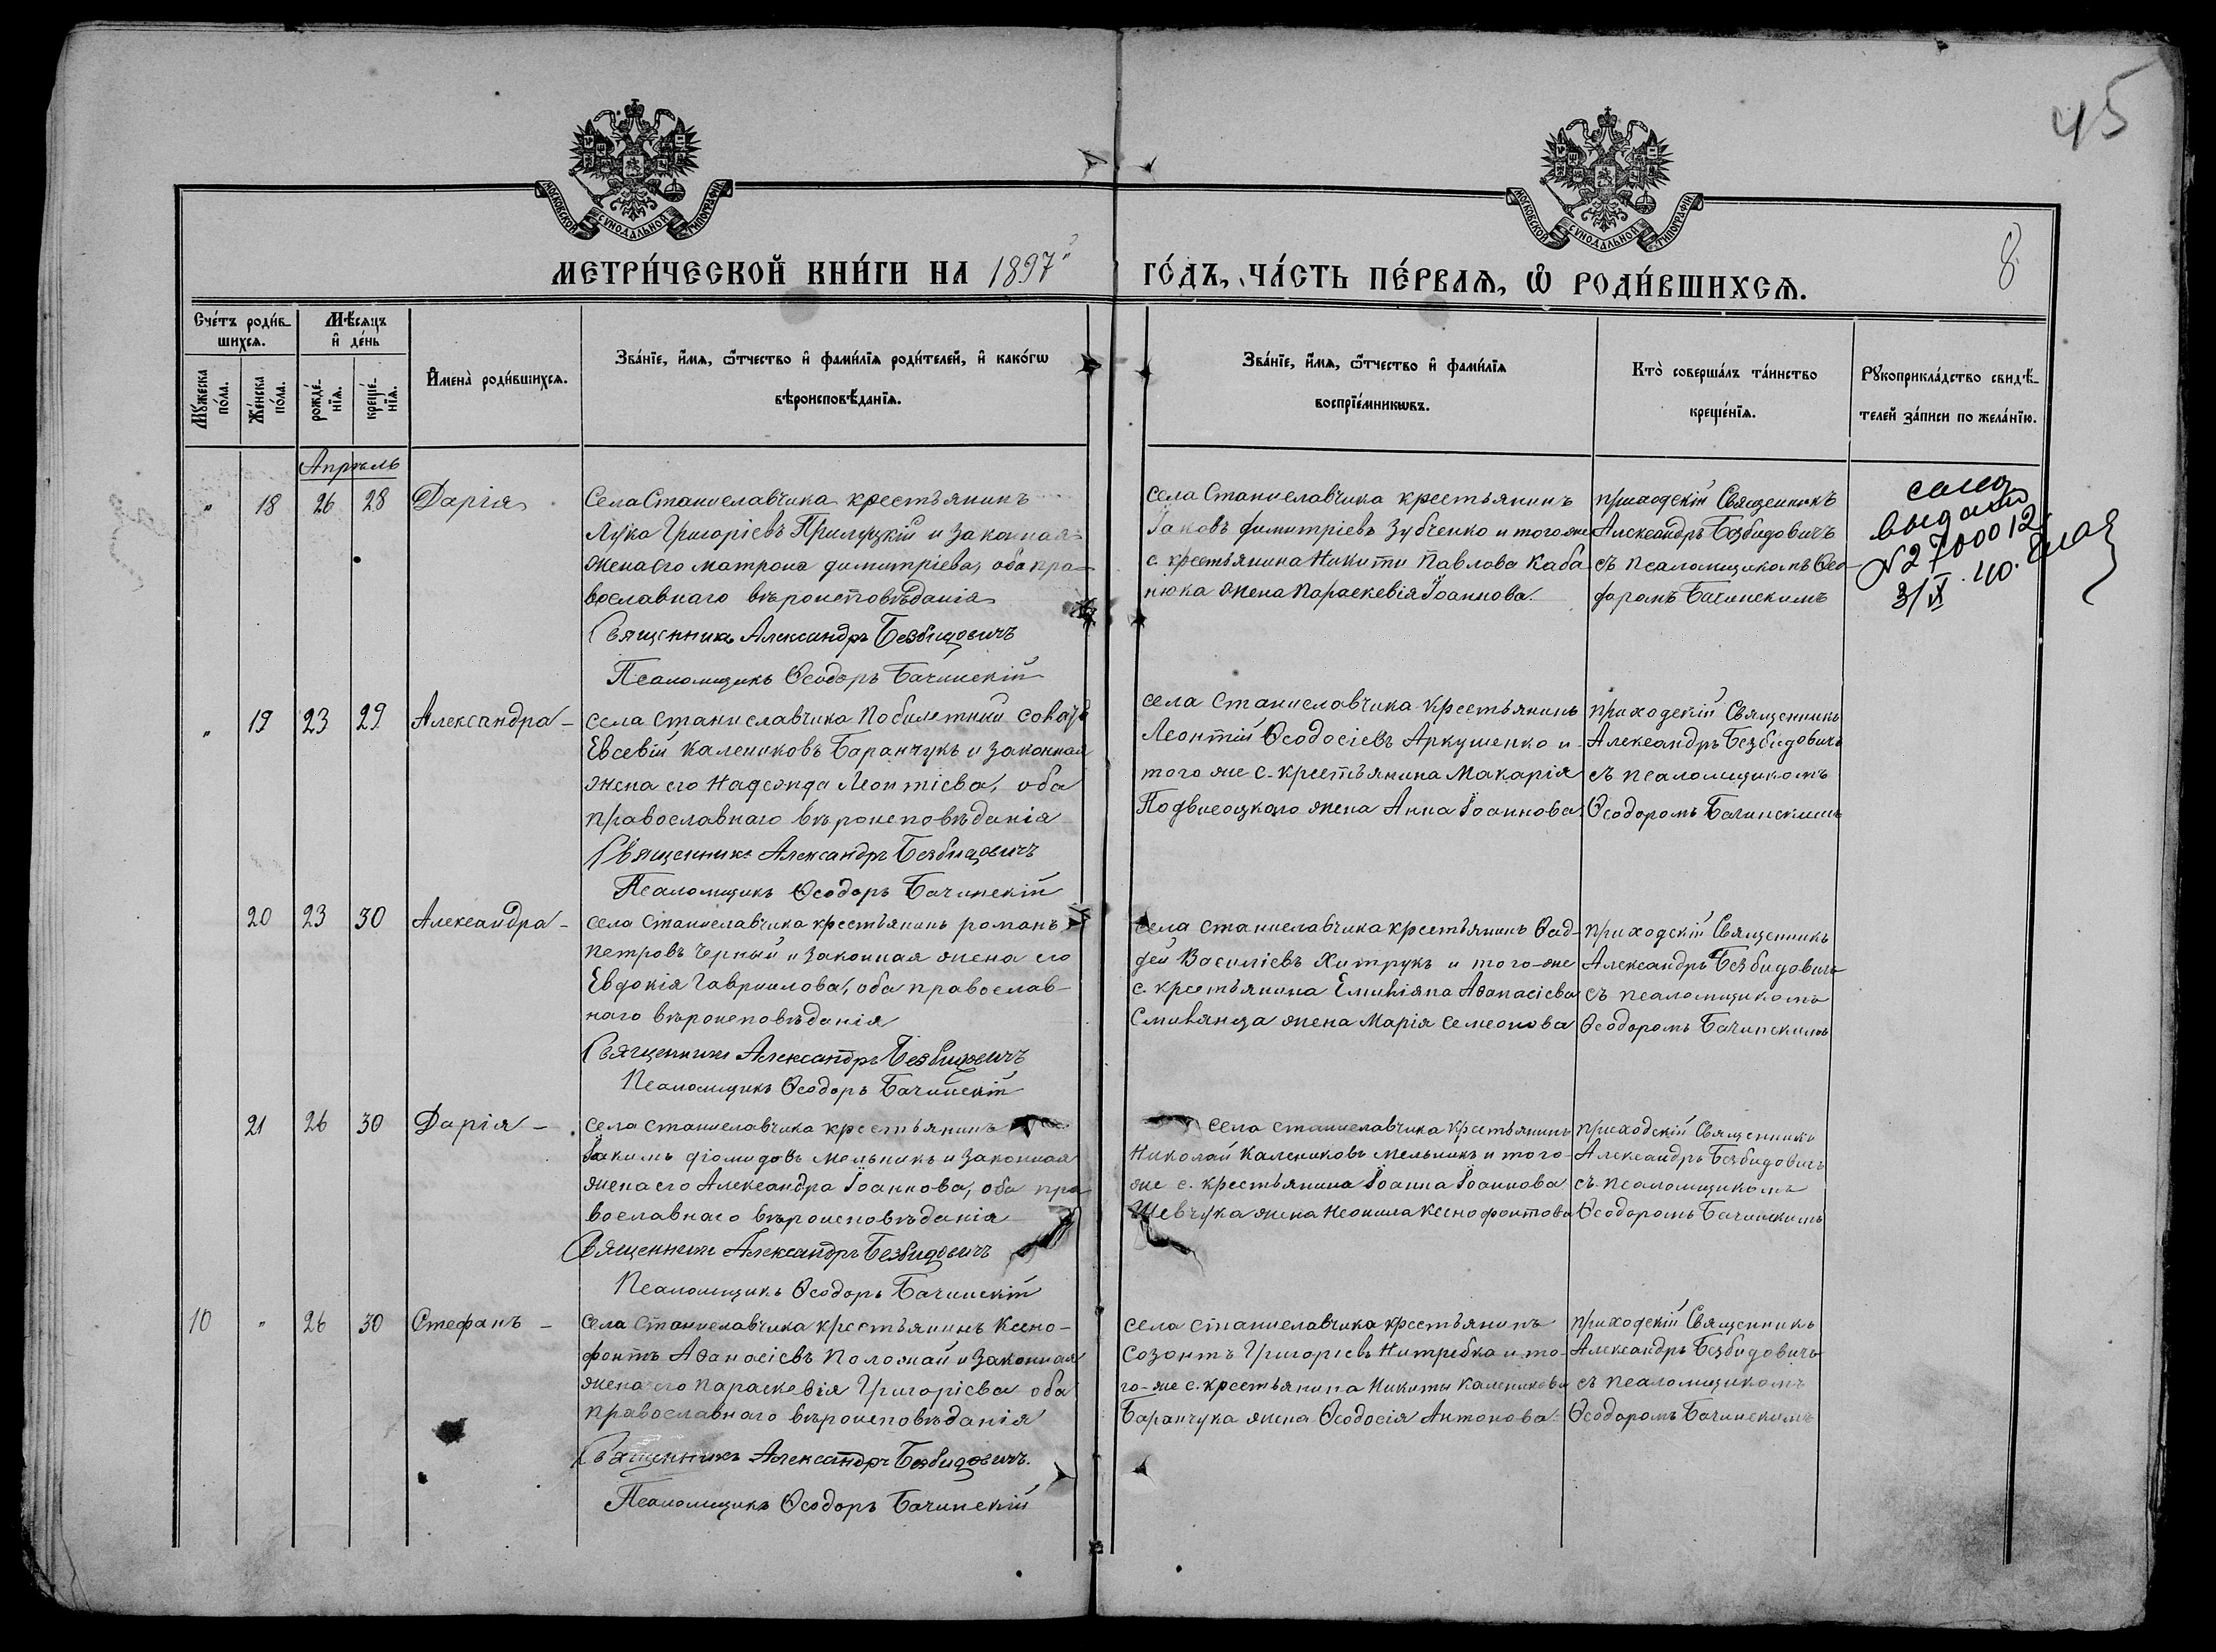 45
МОСКОВСКОЙ СУНОДАЛЬНОЙ ТИПОГРАФІИ
МОСКОВСКОЙ СУНОДАЛЬНОЙ ТИПОГРАФІИ
8
МЕТРИ́ЧЕСКОЙ КНИ́ГИ НА 1897
ГО́ДЪ, ЧА́СТЬ ПЕ́РВАѦ, Ѡ РОДИ́ВШИХСѦ.
Сче́тъ роди́в-
шихсѧ.
Мѣ́сѧцъ
и де́нь
Мꙋ́жеска
по́ла.
Же́нска
по́ла.
рожде́-
нїѧ.
креще́-
нїѧ.
Имена̀ роди́вшихсѧ.
Зва́нїе, и́мѧ, ѻ́тчество и фами́лїѧ роди́телей, и како́гѡ
вѣроисповѣ́данїѧ.
Зва́нїе, и́мѧ, ѻ́тчество и фами́лїѧ
воспрїе́мникѡвъ.
Кто̀ соверша́лъ та́инство
креще́нїѧ.
Рꙋкоприкла́дство свидѣ́-
телей за́писи по жела́нїю.
Апрѣль
" 18 26 28 Дарія
Села Станиславчика крестьянинъ
Лука Григоріевъ Прилуцкій и законная
жена его Матрона Димитріева, оба пра-
вославнаго вѣроисповѣданія
Священникъ Александръ Безбидовичъ
Псаломщикъ Ѳеодоръ Бачинскій
села Станиславчика крестьянинъ
Іаковъ Димитріевъ Зубченко и того же
с. крестьянина Никити Павлова Каба-
нюка жена Параскевія Іоаннова.
приходскій Священникъ
Александръ Безбидовичъ
съ псаломщикомъ Ѳео-
доромъ Бачинскимъ
выдан
№ 2700012
3/IX. 40.
" 19 23 29 Александра -
села Станиславчика по билетный солдатъ
Евсевій Калениковъ Баранчукъ и законная
жена его Надежда Леонтіева, оба
православнаго вѣроисповѣданія
Священникъ Александръ Безбидовичъ
Псаломщикъ Ѳеодоръ Бачинскій
села Станиславчика крестьянинъ
Леонтій Ѳеодосіевъ Аркушенко и
того же с. крестьянина Макарія
Подвисоцкаго жена Анна Іоаннова.
приходскій Священникъ
Александръ Безбидовичъ
съ псаломщикомъ
Ѳеодоромъ Бачинскимъ
20 23 30 Александра -
села Станиславчика крестьянинъ Романъ
Петровъ Черный и законная жена его
Евдокія Гавриилова, оба православ-
наго вѣроисповѣданія
Священникъ Александръ Безбидовичъ
Псаломщикъ Ѳеодоръ Бачинскій
села Станиславчика крестьянинъ Ѳад-
дей Василіевъ Хитрукъ и того-же
с. крестьянина Емиліяна Аѳанасіева
жена Марія Семеонова
приходскій Священникъ
Александръ Безбидовичъ
съ псаломщикомъ
Ѳеодоромъ Бачинскимъ
21 26 30 Дарія -
села Станиславчика крестьянинъ
Іакимъ Діомидовъ Мельникъ и законная
жена его Александра Іоаннова, оба пра
вославнаго вѣроисповѣданія
Священникъ Александръ Безбидовичъ
Псаломщикъ Ѳеодоръ Бачинскій
села Станиславчика крестьянинъ
Николай Калениковъ Мельникъ и того-
же с. крестьянина Іоанна Іоаннова
Шевчука жена Неонила Ксенофонтова
приходскій Священникъ
Александръ Безбидовичъ
съ псаломщикомъ
Ѳеодоромъ Бачинскимъ
10 " 26 30 Стефанъ -
села Станиславчика крестьянинъ Ксено-
фонтъ Аѳанасіевъ Поломай и законная
жена его Параскевія Григоріева оба
православнаго вѣроисповѣданія
Священникъ Александръ Безбидовичъ.
Псаломщикъ Ѳеодоръ Бачинскій
села Станиславчика крестьянинъ
Созонтъ Григоріевъ Нитребка и то-
го-же с. крестьянина Никиты Каленикова
Баранчука жена Ѳеодосія Антонова.
приходскій Священникъ
Александръ Безбидовичъ
съ псаломщикомъ
Ѳеодоромъ Бачинскимъ